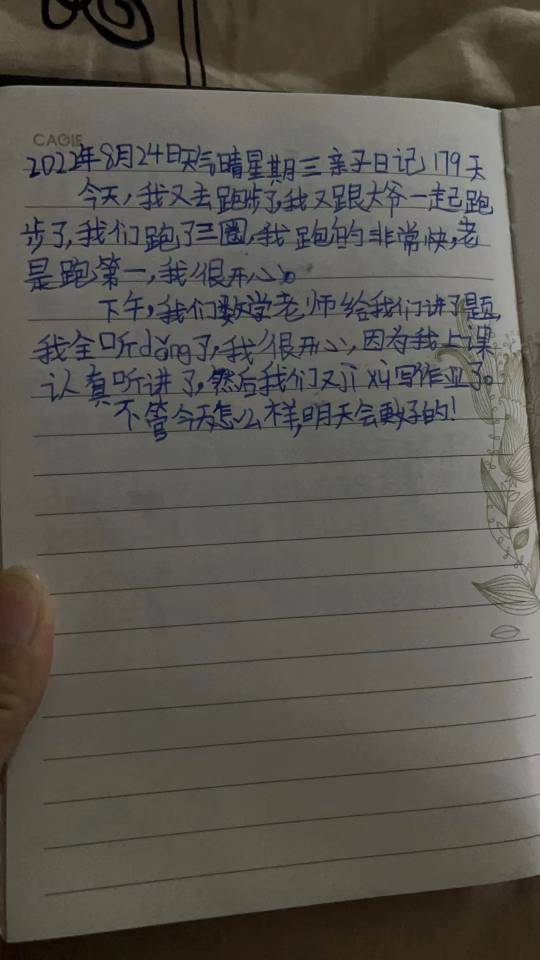 CAGIE
2022年8月24日天气晴星期三亲子日记179天
今天,我又去跑步了,我又跟大爷一起跑
步了,我们跑了三圈,我跑的非常快,老
是跑第一,我很开心。
下午,我们数学老师给我们讲了题,
我全听dǒng了,我很开心,因为我上课
认真听讲了,然后我们又jì xù写作业了。
不管今天怎么样,明天会更好的!